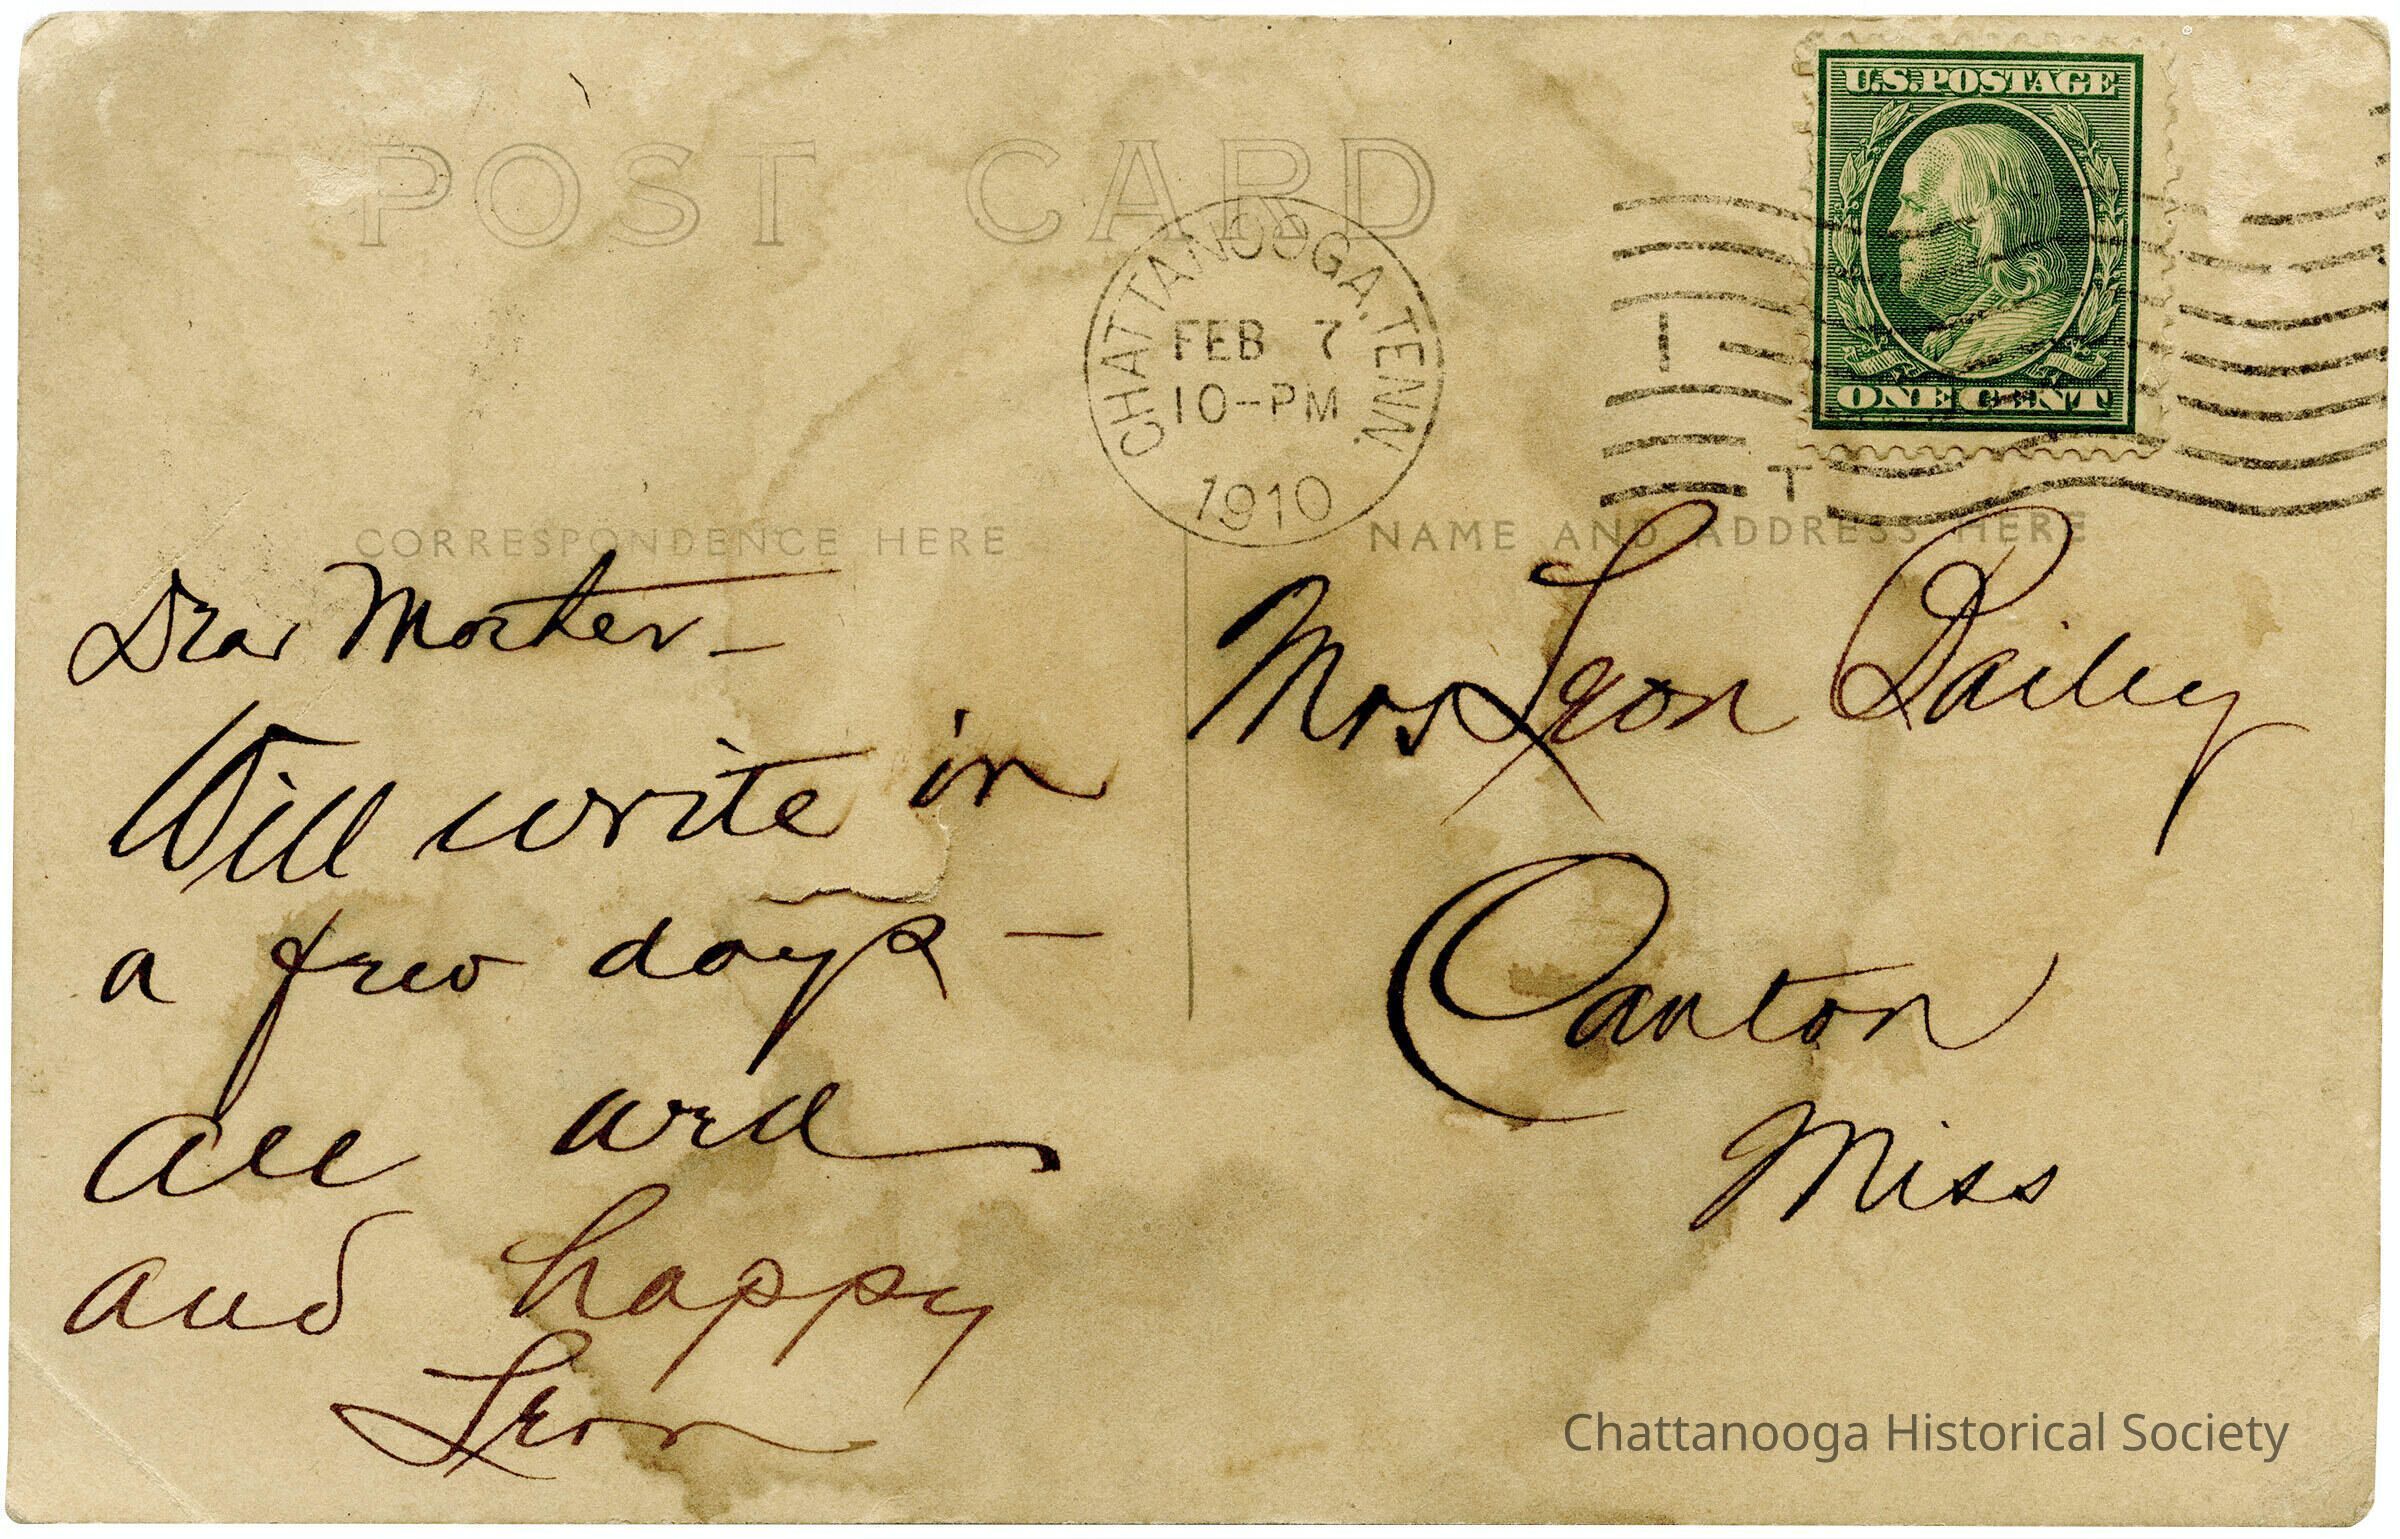 POST CARD
U.S. POSTAGE
ONE CENT
CHATTANOOGA, TENN.
FEB 7
10-PM
1910
I
T
CORRESPONDENCE HERE
NAME AND ADDRESS HERE
Dear Mother –
Will write in
a few days –
all well
and happy
Leon
Mrs Leon Dailey
Canton
Miss
Chattanooga Historical Society